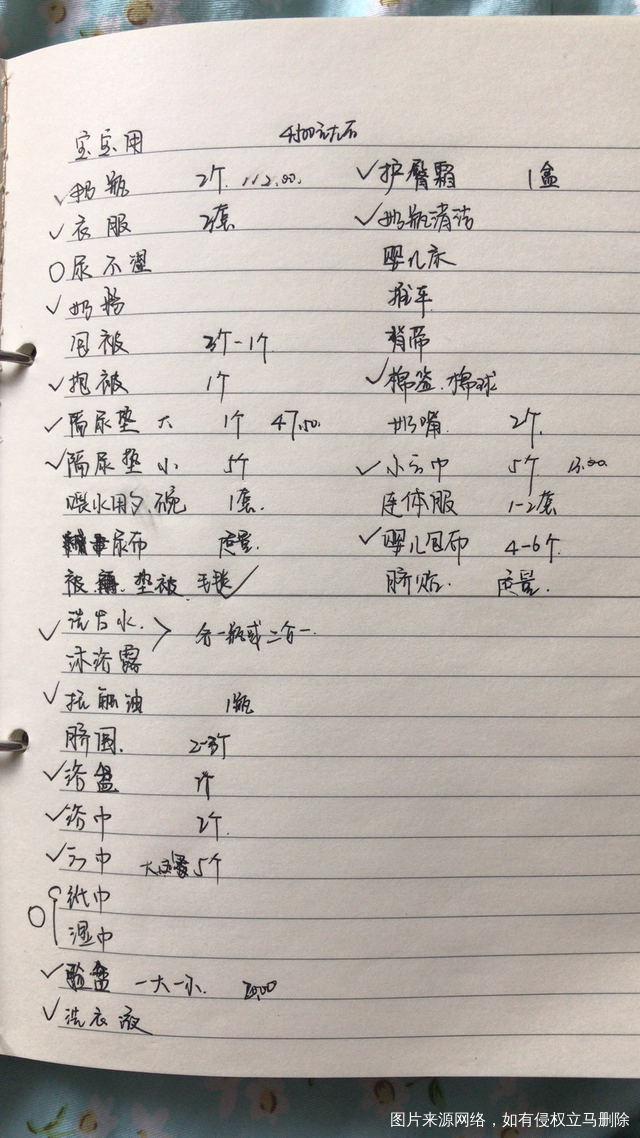 宝宝用
✓奶瓶 2个 112.00
✓衣服 3套
○尿不湿
✓奶粉
包被 1个
✓抱被 1个
✓隔尿垫 大 1个 47.50
✓隔尿垫 小 5个
喂水用勺、碗 1套.
尿布 适量.
被 垫被 毛毯✓
✓洗发水.
沐浴露
各一瓶或二合一.
✓抚触油 1瓶
脐围. 2-3个
✓浴盆 1个
✓浴巾 2个.
✓方巾 5个
○纸巾
湿巾
✓脸盆 一大一小.
✓洗衣液
✓护臀霜 1盒
✓奶瓶清洁
婴儿床
推车
背带
✓棉签、棉球
奶嘴 2个.
✓小方巾 5个
连体服 1-2套
✓婴儿包布 4-6个
脐贴. 适量.
图片来源网络，如有侵权立马删除